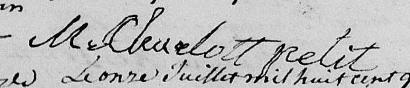 M. Charlott petit
Le onze Juillet mil huit cent